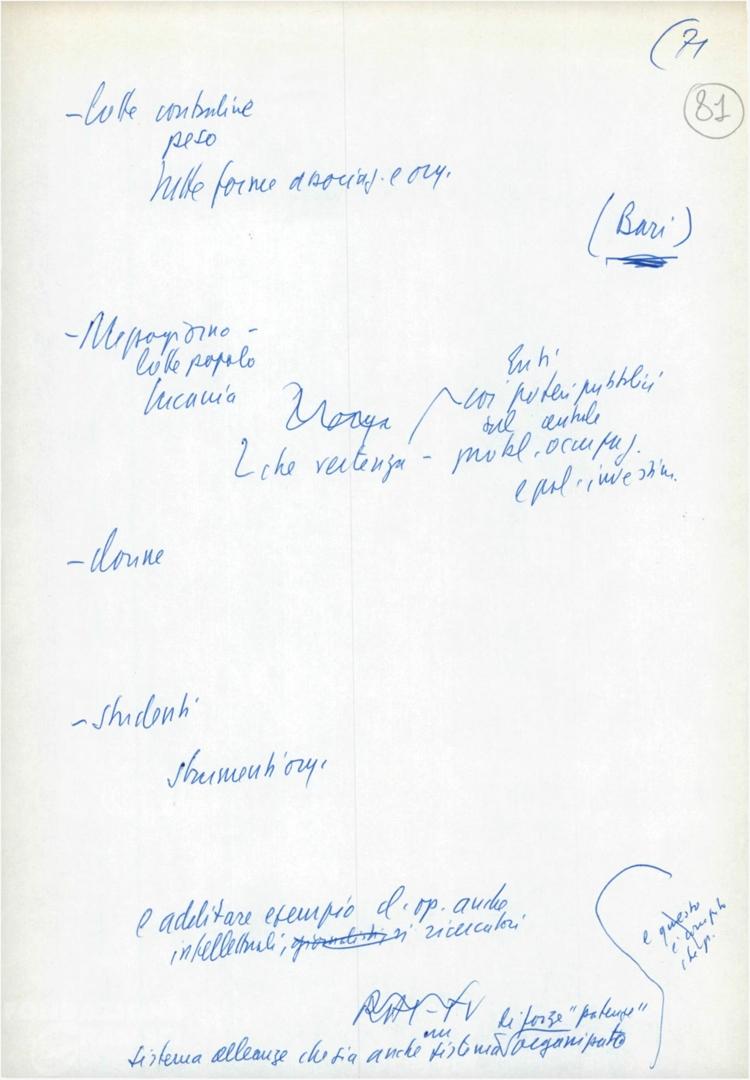 (71
81
- lotte contadine
peso
tutte forme associaz. e org.
(Bari)
- Mezzogiorno -
lotte popolo
lucania
Enti
coi poteri pubblici
sul centrale
2 che vertenza - probl. occupaz.
e pol. investim.
- donne
- studenti
strumenti org.
e additare esempio cl. op. anche
intellettuali, giornalisti, ricercatori
e questo
è compito
che
RAI-TV
di forze "potenze"
sistema alleanze che sia anche un sistema organizzato